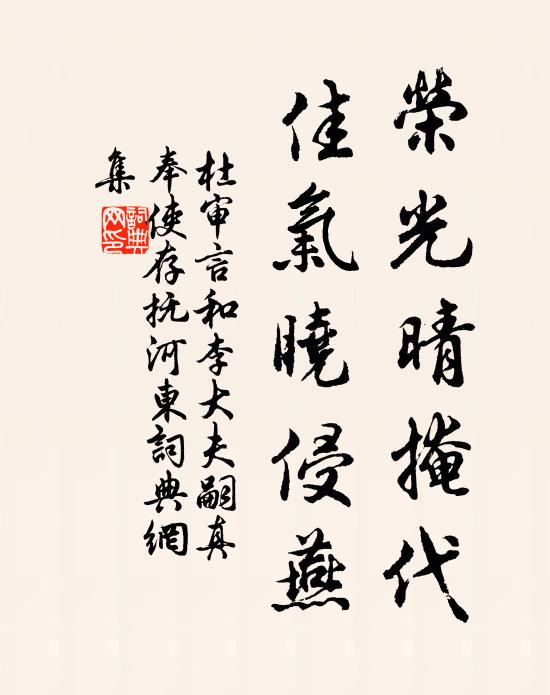 榮光晴掩代
佳氣曉侵燕
杜审言和李大夫嗣真
奉使存抚河東詞典網
集
詞典
网印